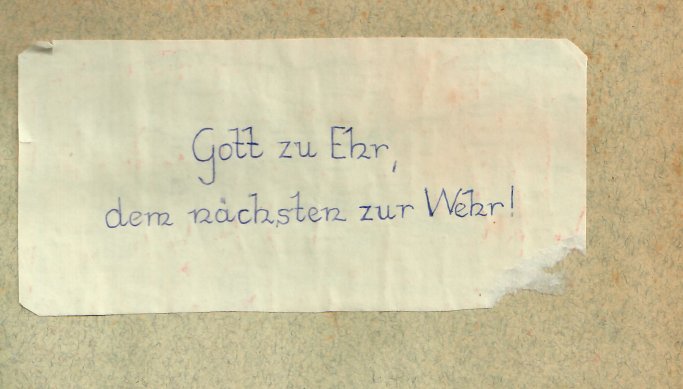 Gott zu Ehr,
dem nächsten zur Wehr!